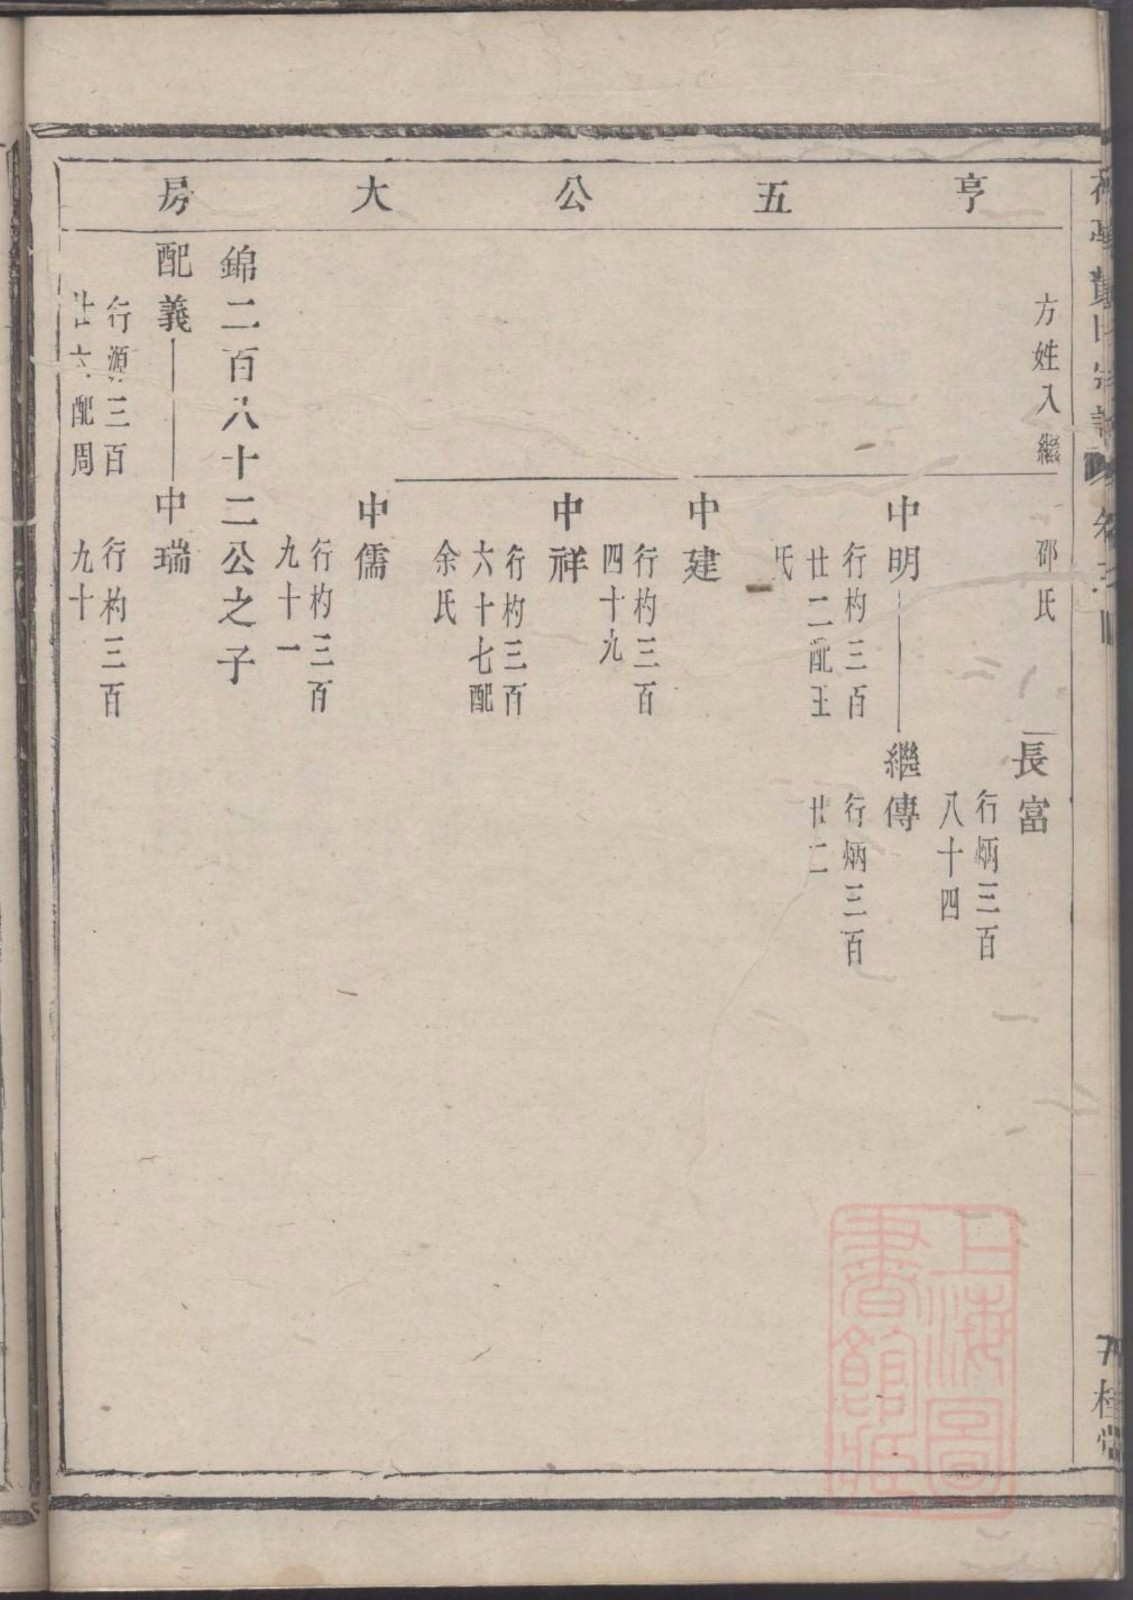 亨五公大房
方姓入繼
邵氏
長富
行炳三百
八十四
中明
繼傳
行杓三百
廿二配王
氏
行炳三百
廿二
中建
行杓三百
四十九
中祥
行杓三百
六十七配
余氏
中儒
行杓三百
九十一
錦二百八十二公之子
配義
中瑞
行源三百
廿六配周
行杓三百
九十
桂堂
上海圖書館藏